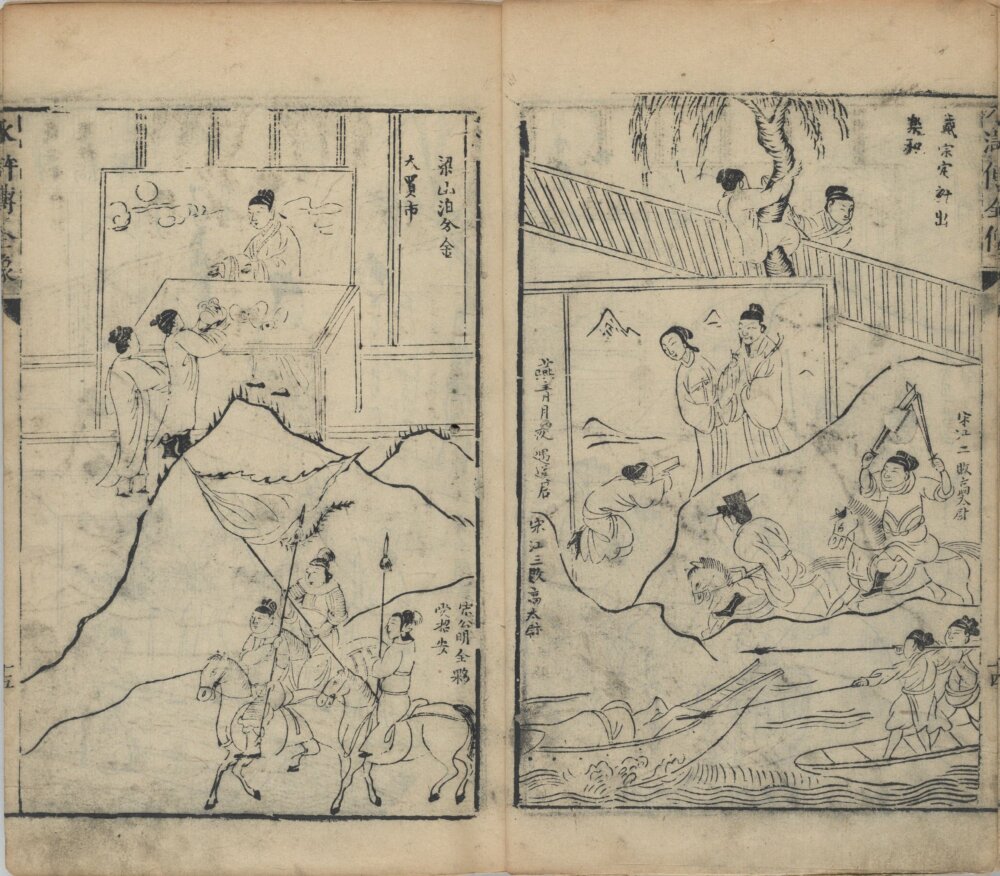 戴宗定計出
樂和
燕青月夜遇道君
宋江二敗高太尉
宋江三敗高太尉
十四
梁山泊分金
大買市
宋公明全夥
受招安
水滸傳全像
十五